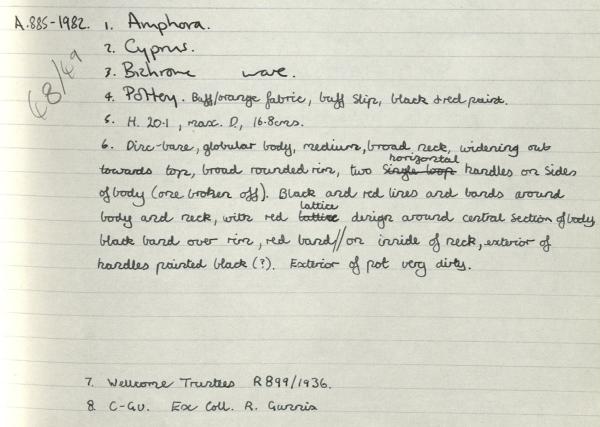 A.885-1982. 1. Amphora.
2. Cyprus.
68/49
3. Bichrome ware.
4. Pottery. Buff/orange fabric, buff slip, black & red paint.
5. H. 20.1, max. D, 16.8cms.
6. Disc-base, globular body, medium, broad neck, widening out
towards top, broad rounded rim, two single loop horizontal handles on sides
of body (one broken off). Black and red lines and bands around
body and neck, with red lattice design around central section of body
black band over rim, red band//on inside of neck, exterior of
handles painted black (?). Exterior of pot very dirty.
7. Wellcome Trustees R899/1936.
8. C-Gu. Ex Coll. R.